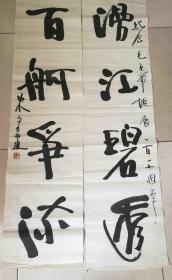 纪念毛主席诞辰一百二十周年
漫江碧透
百舸爭流